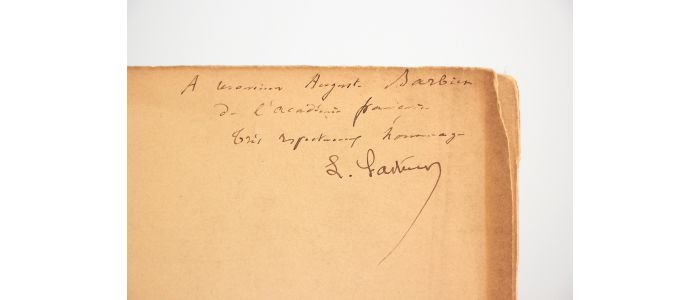 A Monsieur Auguste Barbier
de l'Académie française
très respectueux hommage
L. Pasteur